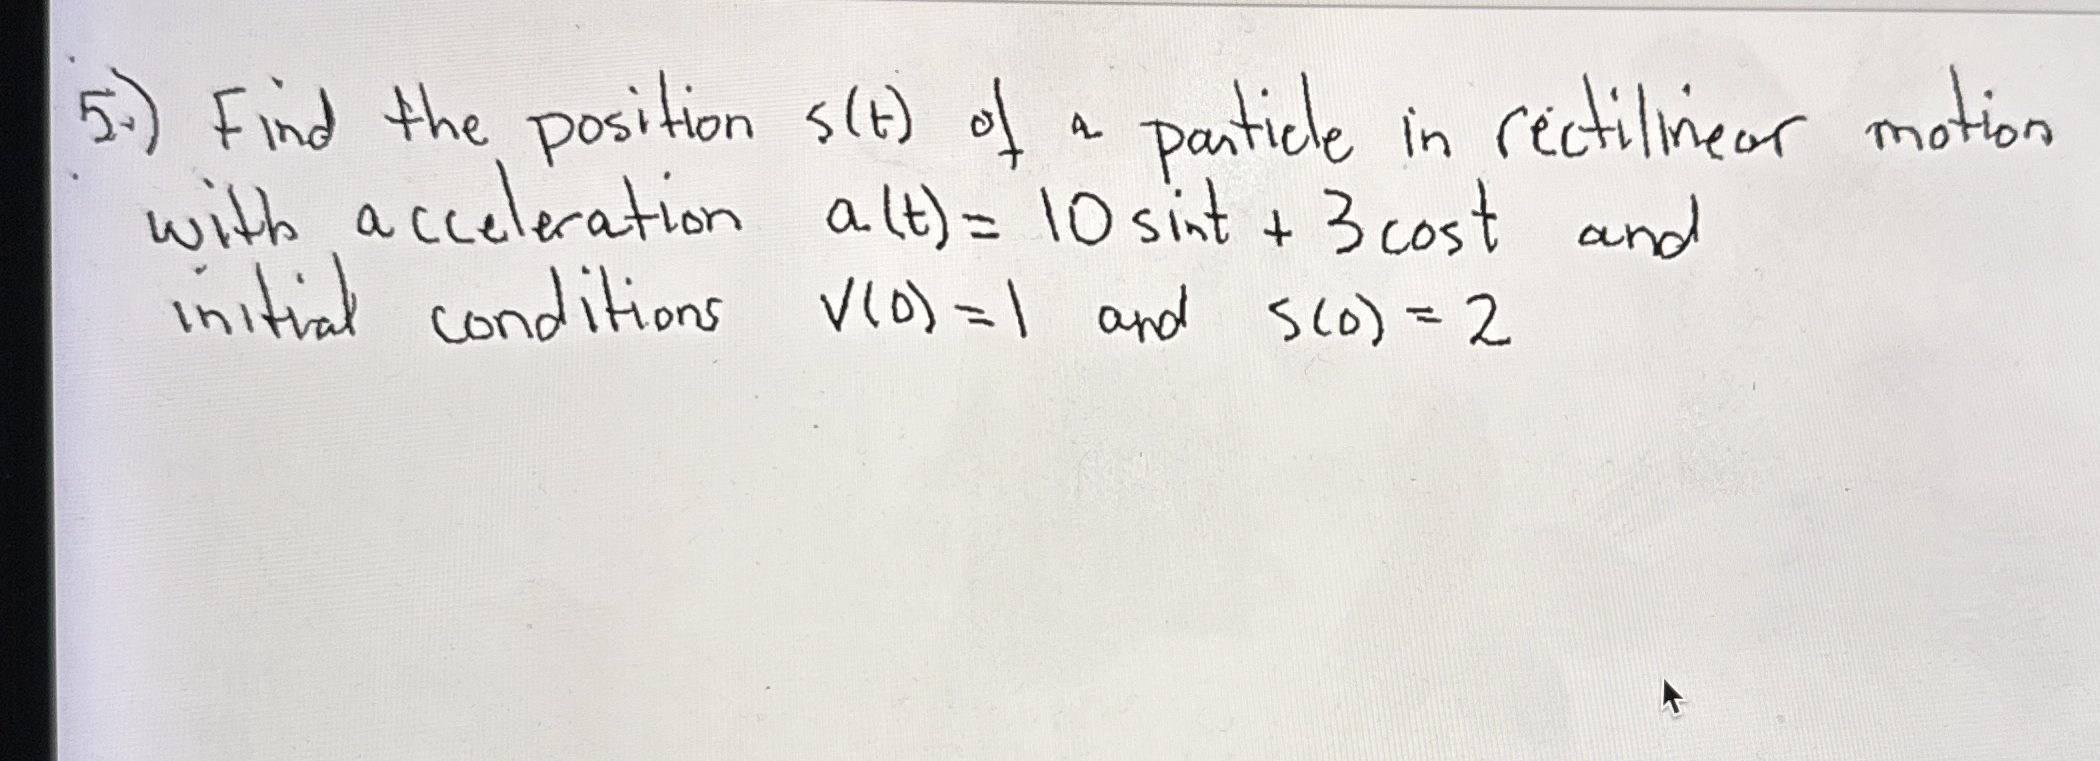 5.) Find the position s(t) of a particle in rectilinear motion
with acceleration a(t) = 10 sint + 3 cost and
initial conditions v(0) = 1 and s(0) = 2